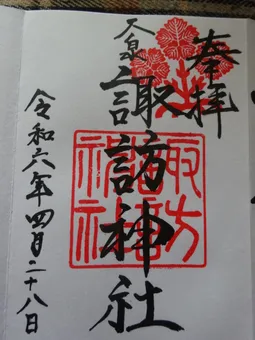 奉拝
大泉
諏訪神社
諏訪神社
令和六年四月二十八日